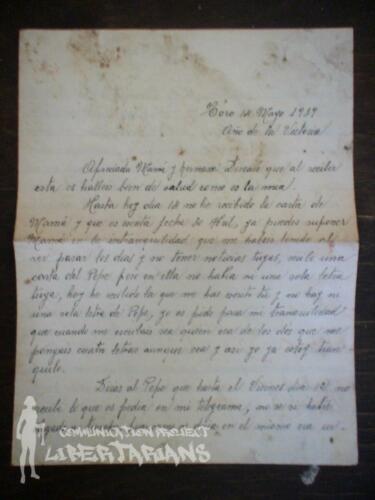 Toro 18 Mayo 1939
Año de la Victoria
Apreciada Mamá y hermano Deseare que al recibir
esta os halleis bien de salud como es la mia.
Hasta hoy dia 18 no he recibido tu carta de
Mamá y que es escrita fecha 30 Abril, ya puedes suponer
Mamá en la intranquilidad que me habeis tenido al
ver pasar los dias y no tener noticias tuyas, recibi una
carta del Pepe pero en ella no habia ni una sola letra
tuya, hoy he recibido la que me has escrito tu y no hay ni
una sola letra de Pepe, yo os pido para mi tranquilidad
que cuando me escribais sea quien sea de los dos que me
pongais cuatro letras aunque sea y asi yo ya estoy tran
quilo.
Diras al Pepe que hasta el Viernes dia 12 no
recibi lo que os pedia en mi telegrama, no se si habia
en el mismo dia
COMMUNICATION PROJECT
LIBERTARIANS